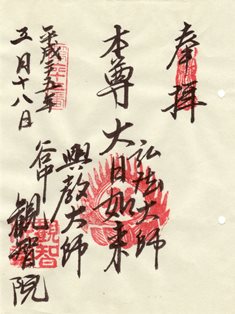 奉拝
弘法大師
本尊 大日如来
興教大師
平成二五年
五月十八日
谷中 観智院